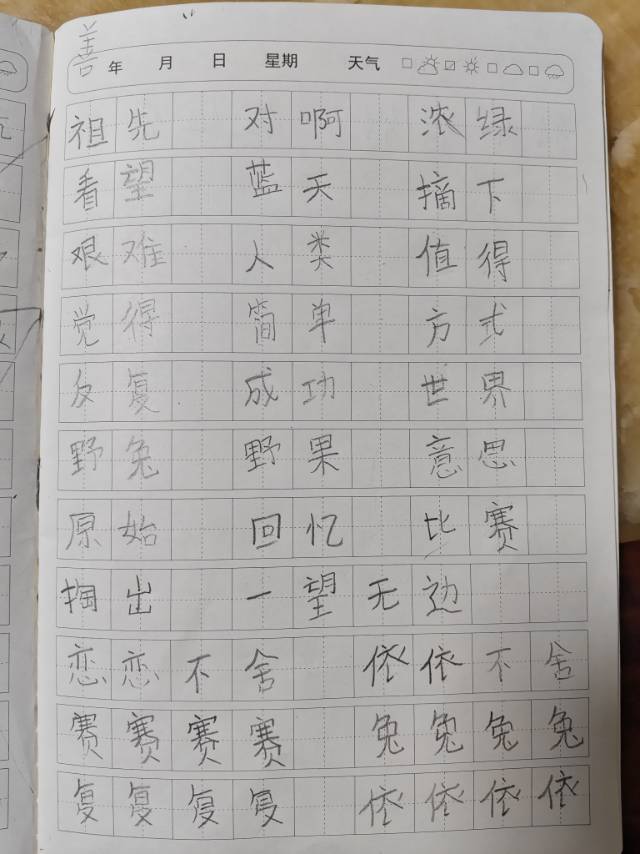 善
年 月 日 星期 天气
祖先 对啊 浓绿
看望 蓝天 摘下
艰难 人类 值得
觉得 简单 方式
反复 成功 世界
野兔 野果 意思
原始 回忆 比赛
掏出 一望无边
恋恋不舍 依依不舍
赛赛赛赛 兔兔兔兔
复复复复 依依依依